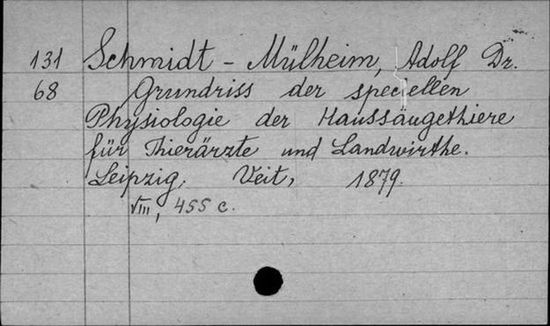 131 Schmidt - Mülheim, Adolf Dr.
68 Grundriss der speciellen
Physiologie der Haussäugethiere
für Thierärzte und Landwirthe.
Leipzig, Veit, 1879.
VIII, 455 c.